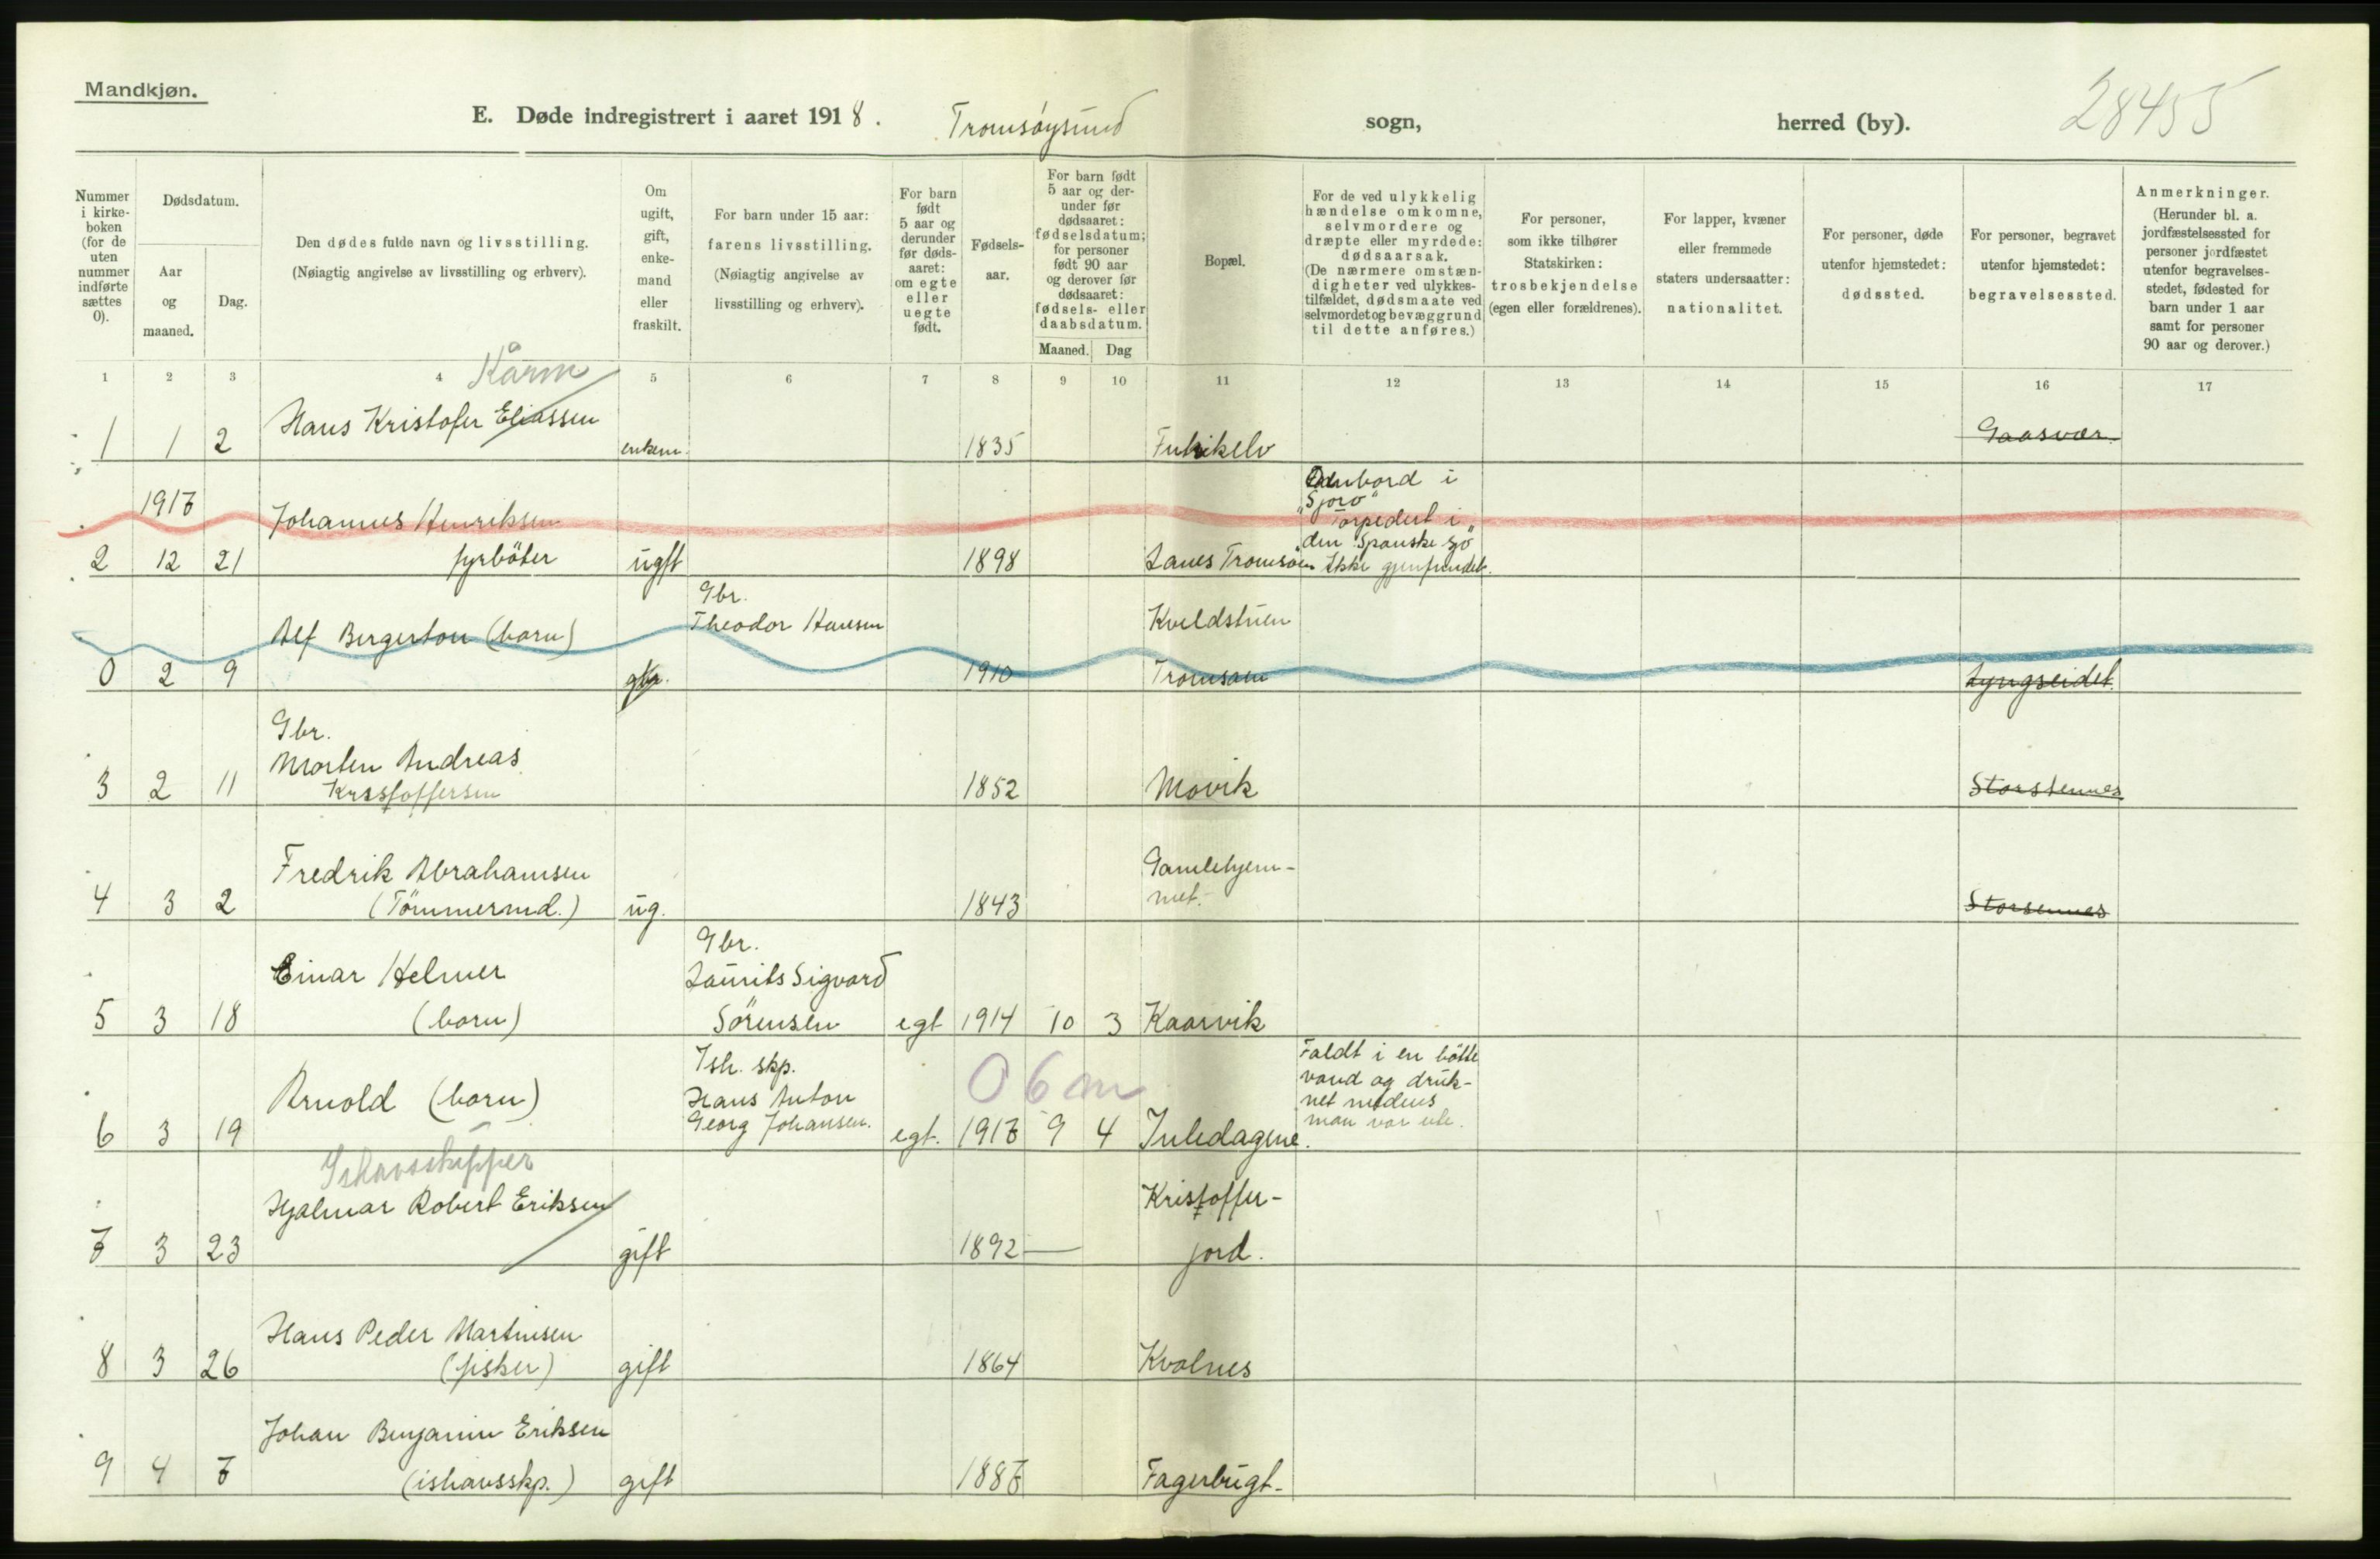 Mandkjøn.
E. Døde indregistrert i aaret 1918. Tromsøysund sogn, herred (by). 28455
Nummer i kirke-boken (for de uten nummer indførte sættes 0).
Dødsdatum.
Aar og maaned.
Dag.
Den dødes fulde navn og livsstilling.
(Nøiagtig angivelse av livsstilling og erhverv).
Om ugift, gift, enke-mand eller fraskilt.
For barn under 15 aar: farens livsstilling.
(Nøiagtig angivelse av livsstilling og erhverv).
For barn født 5 aar og derunder før døds-aaret: om egte eller uegte født.
Fødsels-aar.
For barn født 5 aar og der-under før dødsaaret: fødselsdatum; for personer født 90 aar og derover før dødsaaret: fødsels- eller daabsdatum.
Maaned. Dag
Bopæl.
For de ved ulykkelig hændelse omkomne, selvmordere og dræpte eller myrdede: dødsaarsak.
(De nærmere omstæn-digheter ved ulykkes-tilfældet, dødsmaate ved selvmordet og bevæggrund til dette anføres.)
For personer, som ikke tilhører Statskirken: trosbekjendelse (egen eller forældrenes).
For lapper, kvæner eller fremmede staters undersaatter: nationalitet.
For personer, døde utenfor hjemstedet: dødssted.
For personer, begravet utenfor hjemstedet: begravelsessted.
Anmerkninger.
(Herunder bl. a. jordfæstelsessted for personer jordfæstet utenfor begravelses-stedet, fødested for barn under 1 aar samt for personer 90 aar og derover.)
1 2 3 4 5 6 7 8 9 10 11 12 13 14 15 16 17
Kårm
Hans Kristofer Eliassen
1 1 2 enkem. 1835 Gaasvær
1917 Johannes Henriksen
Ombord i
"Sjorv"
Torpedert i
den "Spanske sjø"
2 12 21 fyrböter ugft 1898 Lanes Tromsöen Ikke gjenfundet.
Gbr.
Alf Bergerton (barn) Theodor Hansen Kveldstuen
0 2 9 gbr. 1910 Tromsöen Lyngseidet
Gbr.
Morten Andreas
3 2 11 Kristoffersen 1852 Movik Storstennes
Fredrik Abrahamsen Gamlehjem-
4 3 2 (Tömmermd.) ug. 1843 met. Storsennes
Gbr.
Einar Helmer Laurits Sigvard
5 3 18 (barn) Sörensen egt 1914 10 3 Kaarvik
Ish. skp. 06m Faldt i en bötte
Arnold (barn) Hans Anton vand og druk-
Georg Johansen. net medens
6 3 19 egt. 1917 9 4 Juledagene. man var ute.
Ishavsskipper
Hjalmar Robert Eriksen Kristoffer-
7 3 23 gift 1892 — jord.
Hans Peder Martinsen
8 3 26 (fisker) gift 1864 Kvalnes
Johan Benjamin Eriksen
9 4 7 (ishavsskp.) gift 1887 Fagerbugt.